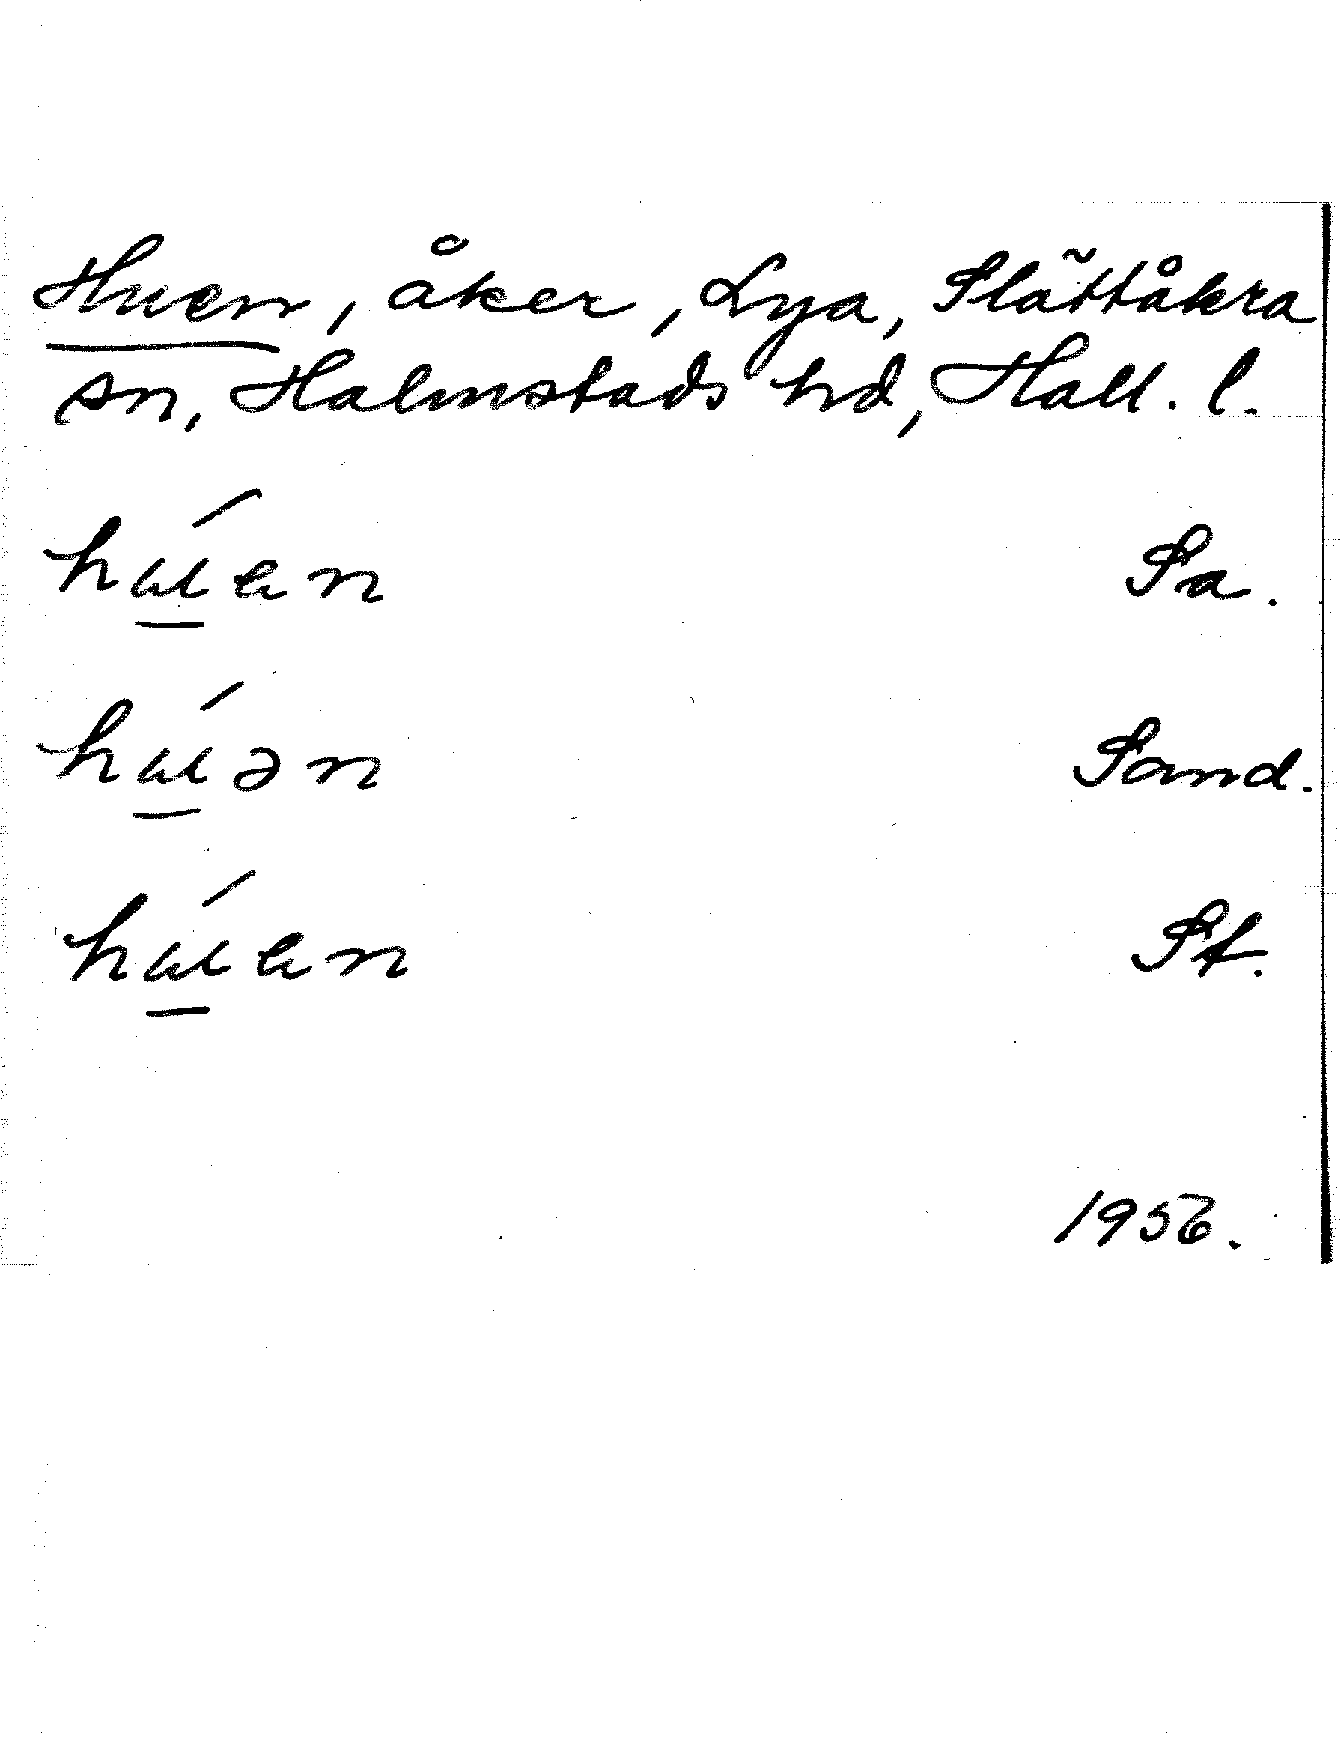 Huen, åker, Lya, Slättåkra
sn, Halmstads hd, Hall. l.
húen Sa.
húən Sand.
húen St.
1956.